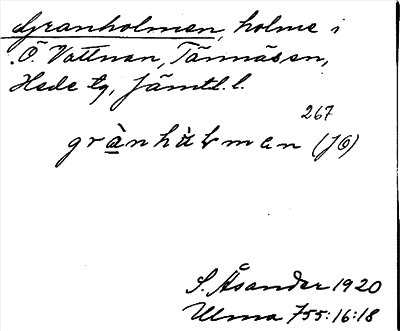 Granholmen, holme i
Ö. Vattnan, Tännäs sn,
Hede tg, Jämtl. l.
267
grànhàɫmɑn (JÖ)
S. Åsander 1920
Ulma 755:16:18